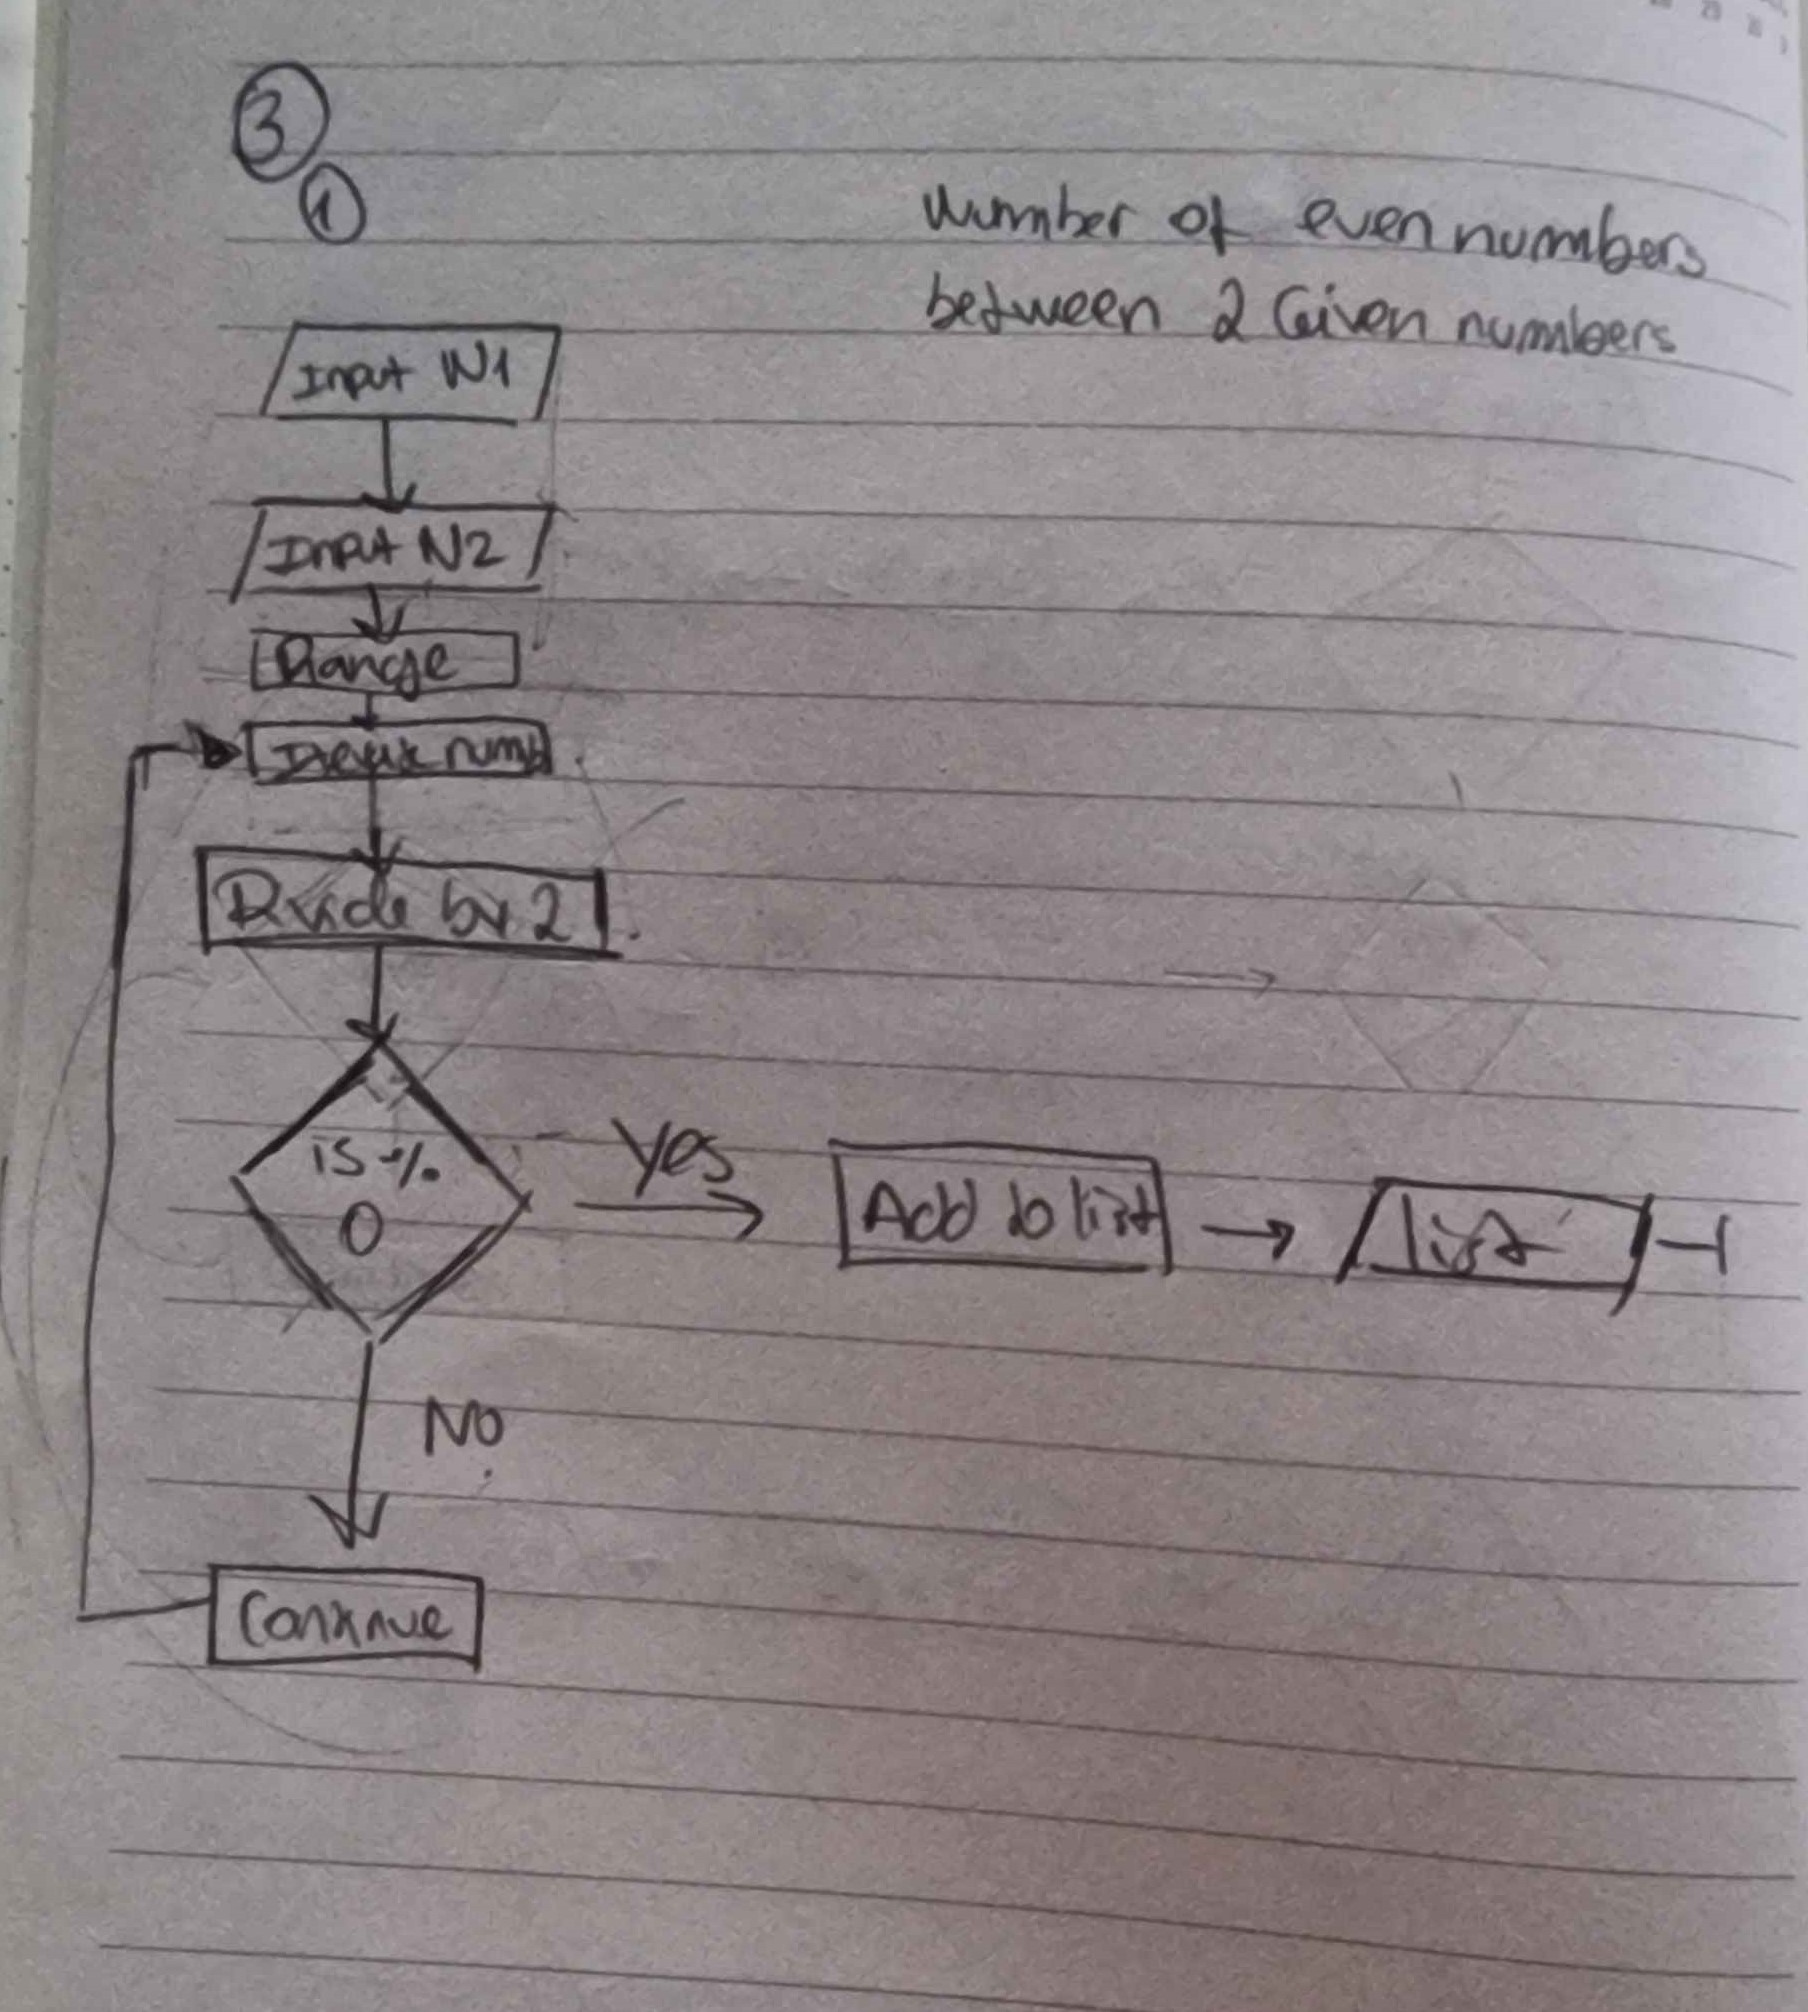 3
1
Number of even numbers
between 2 Given numbers
Input N1
Input N2
Range
num
Divide by 2
is %
0
Yes
Add to list
list
No
Continue